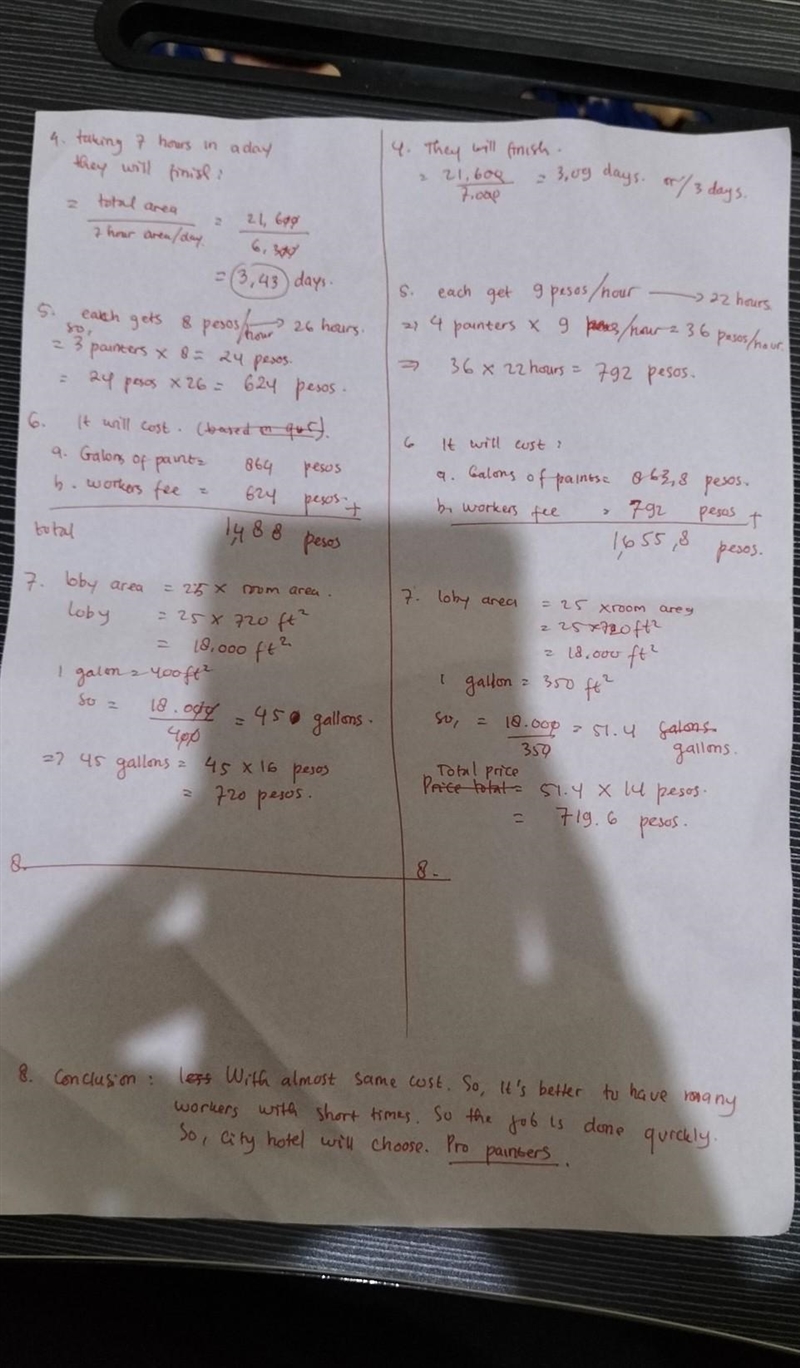 4. taking 7 hours in a day
they will finish:
= total area / 7 hour area/day = 21,600 / 6,300
= 3,43 days.
5. each gets 8 pesos/hour → 26 hours.
so,
= 3 painters x 8 = 24 pesos.
= 24 pesos x 26 = 624 pesos.
6. It will cost. (based on q4&5).
a. Galons of paint = 864 pesos
b. workers fee = 624 pesos +
total 1,488 pesos
7. loby area = 25 x room area.
Loby = 25 x 720 ft²
= 18.000 ft²
1 galon = 400 ft²
so = 18.000 / 400 = 450 gallons.
=> 45 gallons = 45 x 16 pesos
= 720 pesos.
8.
4. They will finish.
= 21,600 / 7.000 = 3,09 days. or/ 3 days.
5. each get 9 pesos/hour → 22 hours
=> 4 painters x 9 pesos/hour = 36 pesos/hour.
=> 36 x 22 hours = 792 pesos.
6 It will cost:
a. Galons of paints = 863,8 pesos.
b. workers fee = 792 pesos +
1,655,8 pesos.
7. loby area = 25 x room area
= 25 x 720 ft²
= 18.000 ft²
1 gallon = 350 ft²
so, = 18.000 / 350 = 51.4 galons
gallons.
Total price
Price total = 51.4 x 14 pesos.
= 719.6 pesos.
8.
8. Conclusion: less With almost same cost. So, It's better to have many
workers with short times. So the job is done quickly.
So, City hotel will choose. Pro painters.